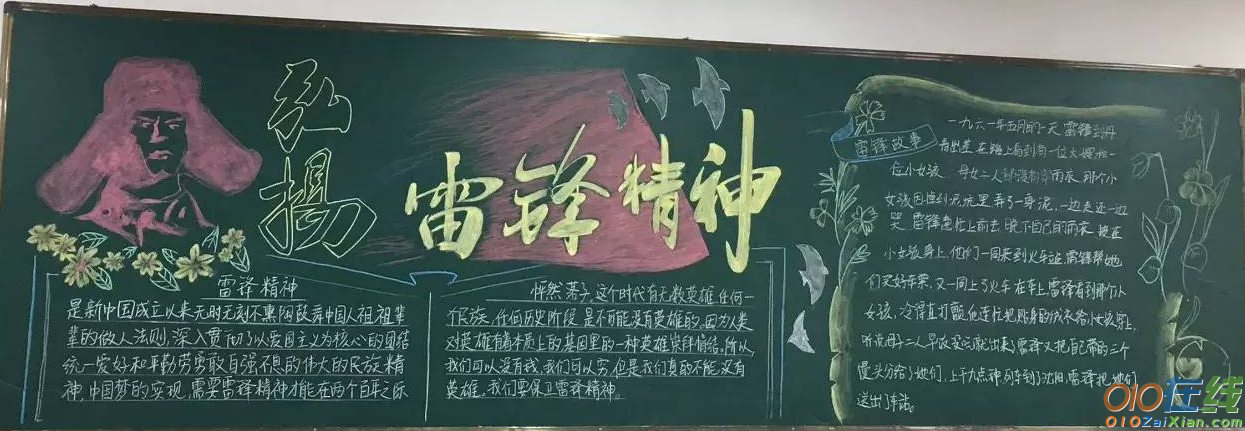 弘
揚
雷锋精神
雷锋精神
是新中国成立以来无时无刻不熏陶鼓舞中国人祖祖辈
辈的做人法则,深入贯彻了以爱国主义为核心的团结
统一爱好和平勤劳勇敢自强不息的伟大的民族精
神,中国梦的实现,需要雷锋精神才能在两个百年之际
怦然落子,这个时代有无数英雄任何一
个民族,任何历史阶段是不可能没有英雄的,因为人类
对英雄有着本质上的基因里的一种英雄崇拜情结。所以,
我们可以没有我,我们可以穷,但是我们真的不能没有
英雄。我们要保卫雷锋精神。
雷锋故事
一九六一年五月的一天 雷锋到丹
出差 在路上看到有一位大嫂和一
位小女孩 母女二人都没有穿雨衣 那个小
女孩因掉到泥坑里弄了一身泥,一边走还一边
哭 雷锋急忙上前去 脱下自己的雨衣 披在
小女孩身上,他们一同来到火车站,雷锋帮她
们买好车票,又一同上了火车 在车上,雷锋看到那个小
女孩,冷得直打颤,他连忙把贴身的绒衣给小女孩穿上,
雷锋又把自己带的三个
馒头分给了她们,上午九点钟,列车到了沈阳,雷锋把她们
送出了车站。
010在线
010ZaiXian.com